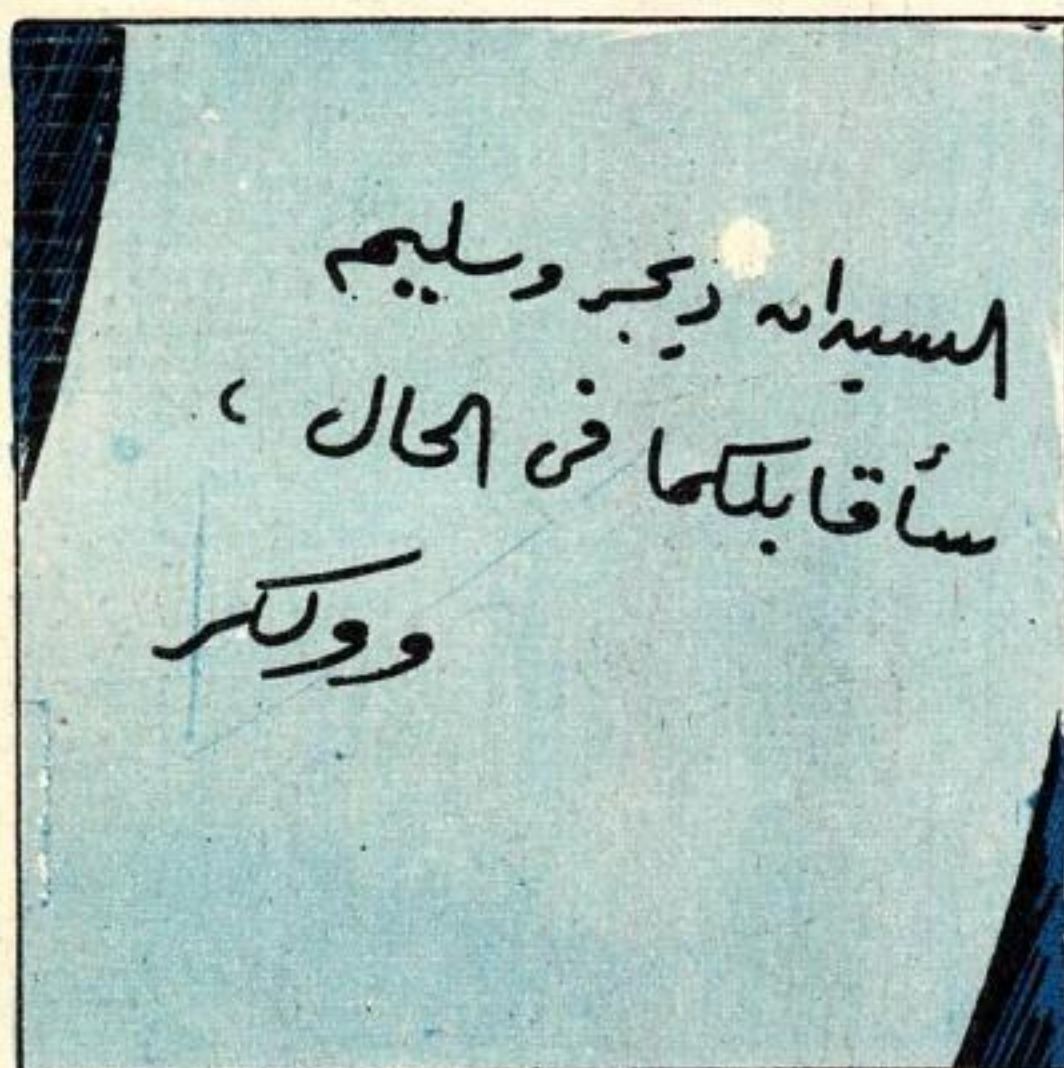 السيدان ديجر وسليم
سأقابلكما فى الحال ،
وولكر